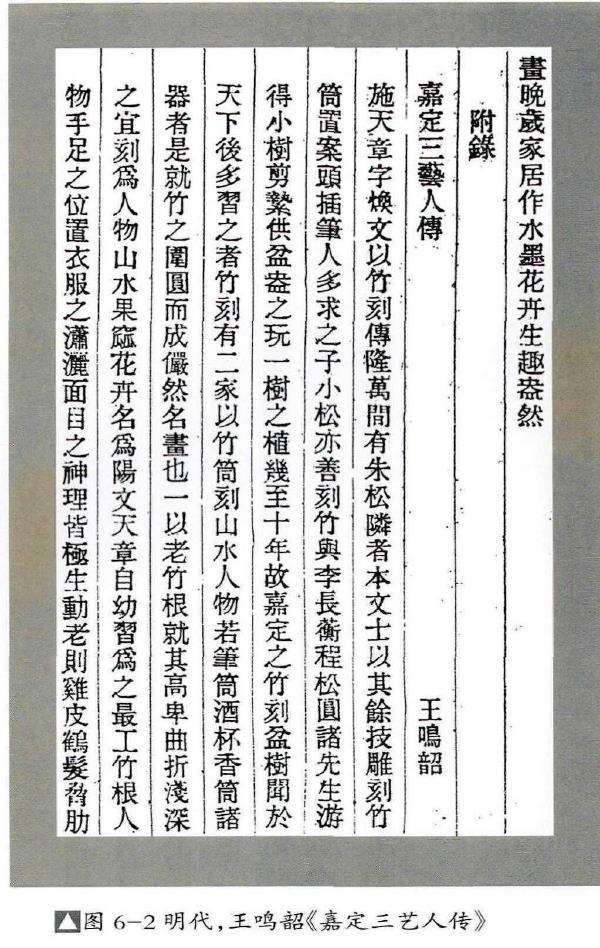 畫晚歲家居作水墨花卉生趣盎然
附錄
嘉定三藝人傳　王鳴韶
施天章字煥文以竹刻傳隆萬間有朱松隣者本文士以其餘技雕刻竹
筒置案頭插筆人多求之子小松亦善刻竹與李長蘅程松圓諸先生游
得小樹剪縶供盆盎之玩一樹之植幾至十年故嘉定之竹刻盆樹聞於
天下後多習之者竹刻有二家以竹筒刻山水人物若筆筒酒杯香筒諸
器者是就竹之圍圓而成儼然名畫也一以老竹根就其高卑曲折淺深
之宜刻爲人物山水果窳花卉名爲陽文天章自幼習爲之最工竹根人
物手足之位置衣服之瀟灑面目之神理皆極生動老則雞皮鶴髮脅肋
图 6-2 明代,王鸣韶《嘉定三艺人传》